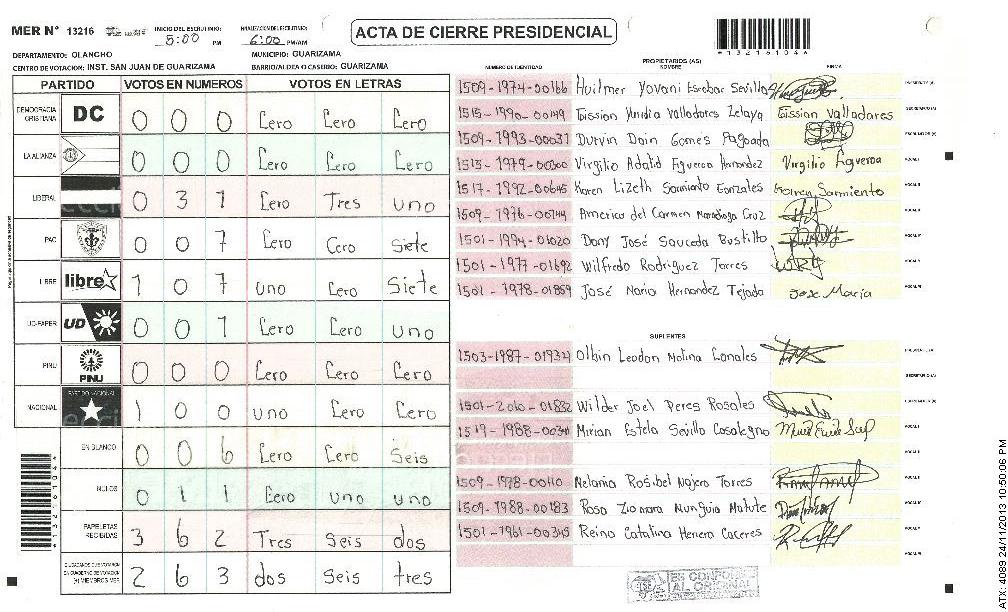 MER Nº 13216 INICIO DEL ESCRUTINIO: 5:00 PM FINALIZACION DEL ESCRUTINIO: 6:00 PM/AM
ACTA DE CIERRE PRESIDENCIAL
*13216104*
DEPARTAMENTO: OLANCHO MUNICIPIO: GUARIZAMA
CENTRO DE VOTACION: INST. SAN JUAN DE GUARIZAMA BARRIO/ALDEA O CASERIO: GUARIZAMA
PARTIDO VOTOS EN NUMEROS VOTOS EN LETRAS
DEMOCRACIA CRISTIANA DC 0 0 0 Cero Cero Cero
LA ALIANZA 0 0 0 Cero Cero Cero
LIBERAL 0 3 1 Cero Tres uno
PAC 0 0 7 Cero Cero Siete
LIBRE libre 1 0 7 uno Cero Siete
UD-FAPER UD 0 0 1 Cero Cero uno
PINU PINU 0 0 0 Cero Cero Cero
NACIONAL PARTIDO NACIONAL 1 0 0 uno Cero Cero
EN BLANCO 0 0 6 Cero Cero Seis
NULOS 0 1 1 Cero uno uno
PAPELETAS RECIBIDAS 3 6 2 Tres Seis dos
CIUDADANOS QUE VOTARON EN CUADERNO DE VOTACION (+) MIEMBROS MER 2 6 3 dos Seis tres
*13216104*
PROPIETARIOS (AS)
NUMERO DE IDENTIDAD NOMBRE FIRMA
1509-1974-00166 Huilmer Yovani Escobar Sevilla PRESIDENTE (A)
1515-1990-00149 Eission Valladares Zelaya Eission Valladares SECRETARIO (A)
1509-1993-00031 Durvin Doin Gomes Pagoada ESCRUTADOR (A)
1515-1979-00300 Virgilio Adalid Figueroa Hernandez Virgilio Figueroa VOCAL I
1517-1992-00645 Karen Lizeth Sarmiento Gonzales Karen Sarmiento VOCAL II
1509-1976-00144 America del Carmen Maradiaga Cruz VOCAL III
1501-1994-01020 Dany José Sauceda Bustillo VOCAL IV
1501-1977-01692 Wilfredo Rodriguez Torres VOCAL V
1501-1978-01859 José Mario Hernandez Tejada Jose Maria VOCAL VI
SUPLENTES
1503-1987-01934 Olbin Leodan Molina Canales PRESIDENTE (A)
SECRETARIO (A)
1501-2010-01832 Wilder Joel Peres Rosales ESCRUTADOR (A)
1519-1988-00341 Mirian Estela Sevilla VOCAL I
VOCAL II
1509-1978-00110 Melania Rosibel Najera Torres VOCAL III
1509-1988-00183 Rosa Ziomara Munguia Matute VOCAL IV
1501-1961-00345 Reina Catalina Herrera Caceres VOCAL V
VOCAL VI
ES CONFORME AL ORIGINAL
ATX: 4089 24/11/2013 10:50:06 PM